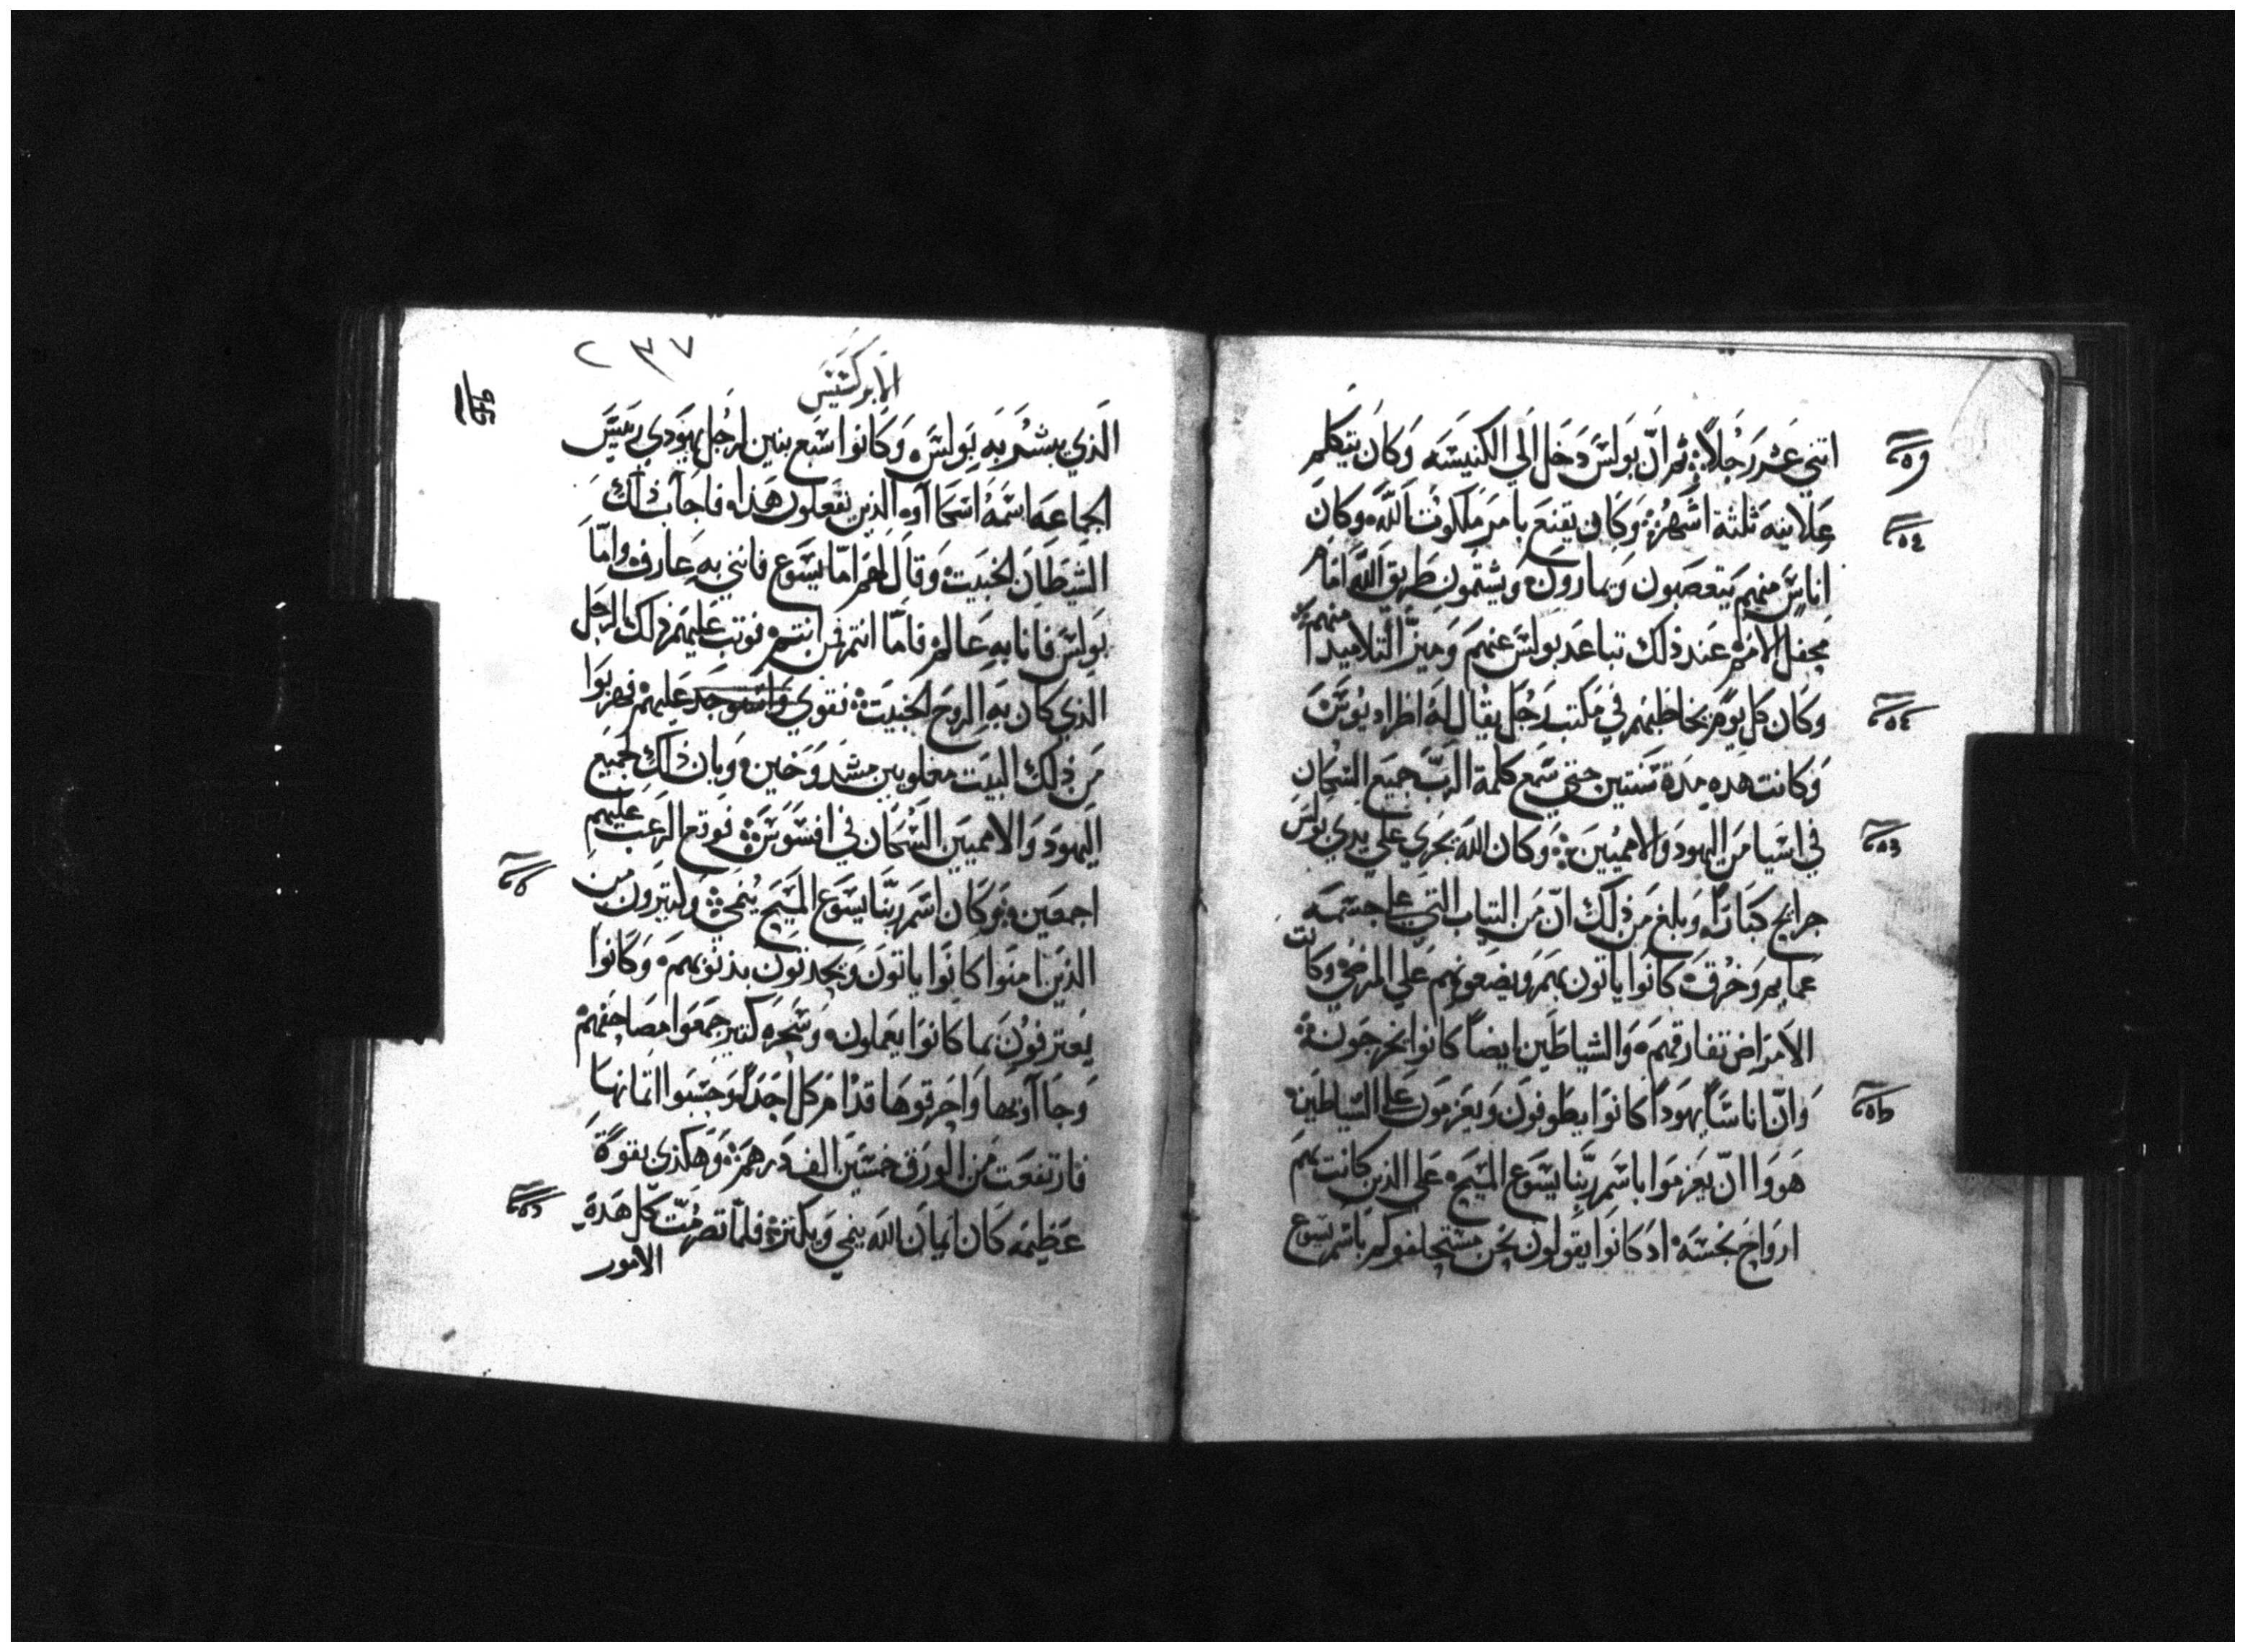 اتني عشر رجلاً ثم ان بولس دخل الي الكنيسه وكان يتكلم
علانيه ثلثة اشهر وكان يقنع بامر ملكوت الله وكان
اناس منهم يتعصبون ويمارون ويشتمون طريق الله امام
محفل الامم عند ذلك تباعد بولس عنهم وميز التلاميد
منهم
وكان كل يوم يخاطبهم في مكتب رجل يقال له اطرانيوس
وكانت هده مدة سنتين حتي سمع كلمة الرب جميع السكان
في اسيا من اليهود والامميين وكان الله يجري علي يدي بولس
جرايح كباراً وبلغ من ذلك ان من التياب التي علي جسمه
عمايم وخرق كانوا ياتون بهم ويضعونهم علي المرضي وكانت
الامراض تفارقهم والشياطين ايضاً كانوا يخرجون
وان اناساً يهوداً كانوا يطوفون ويعزمون علي الشياطين
هووا ان يعزموا باسم ربنا يسوع المسيح علي الذين كانت بهم
ارواح نجسه اد كانوا يقولون نحن نستحلفوكم باسم يسوع
٢٣٧
الابركسيس
الذي يبشر به بولس وكانوا سبع بنين لرجل يهودي رييس
الجماعه اسمه اسكاآوه الذين يفعلون هذا فاجاب ذلك
الشيطان الخبيت وقال لهم اما يسوع فانني به عارف واما
بولس فانا به عالم فاما انتم فمن انتم فوتب عليهم ذلك الرجل
الذي كان به الروح الخبيت فقوي عليهم فهربوا
من ذلك البيت مغلوبين مشدوخين وبان ذلك لجميع
اليهود والامميين السكان في افسوس فوقع الرعب عليهم
اجمعين وكان اسم ربنا يسوع المسيح ينمي وكتيرون من
الذين امنوا كانوا ياتون ويحدتون بذنوبهم وكانوا
يعترفون بما كانوا يعملون وسحره كتير جمعوا مصاحفهم
وجاآوا بها واحرقوها قدام كل احد وحسبوا اتمانها
فارتفعت من الورق خمسين الف درهم وهكذي بقوة
عظيمه كان ايمان الله ينمي ويكتر فلما تصرمت كل هده
الامور